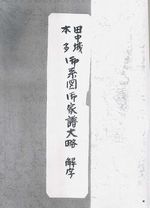 田中城
本多御系図御家譜大略 解字